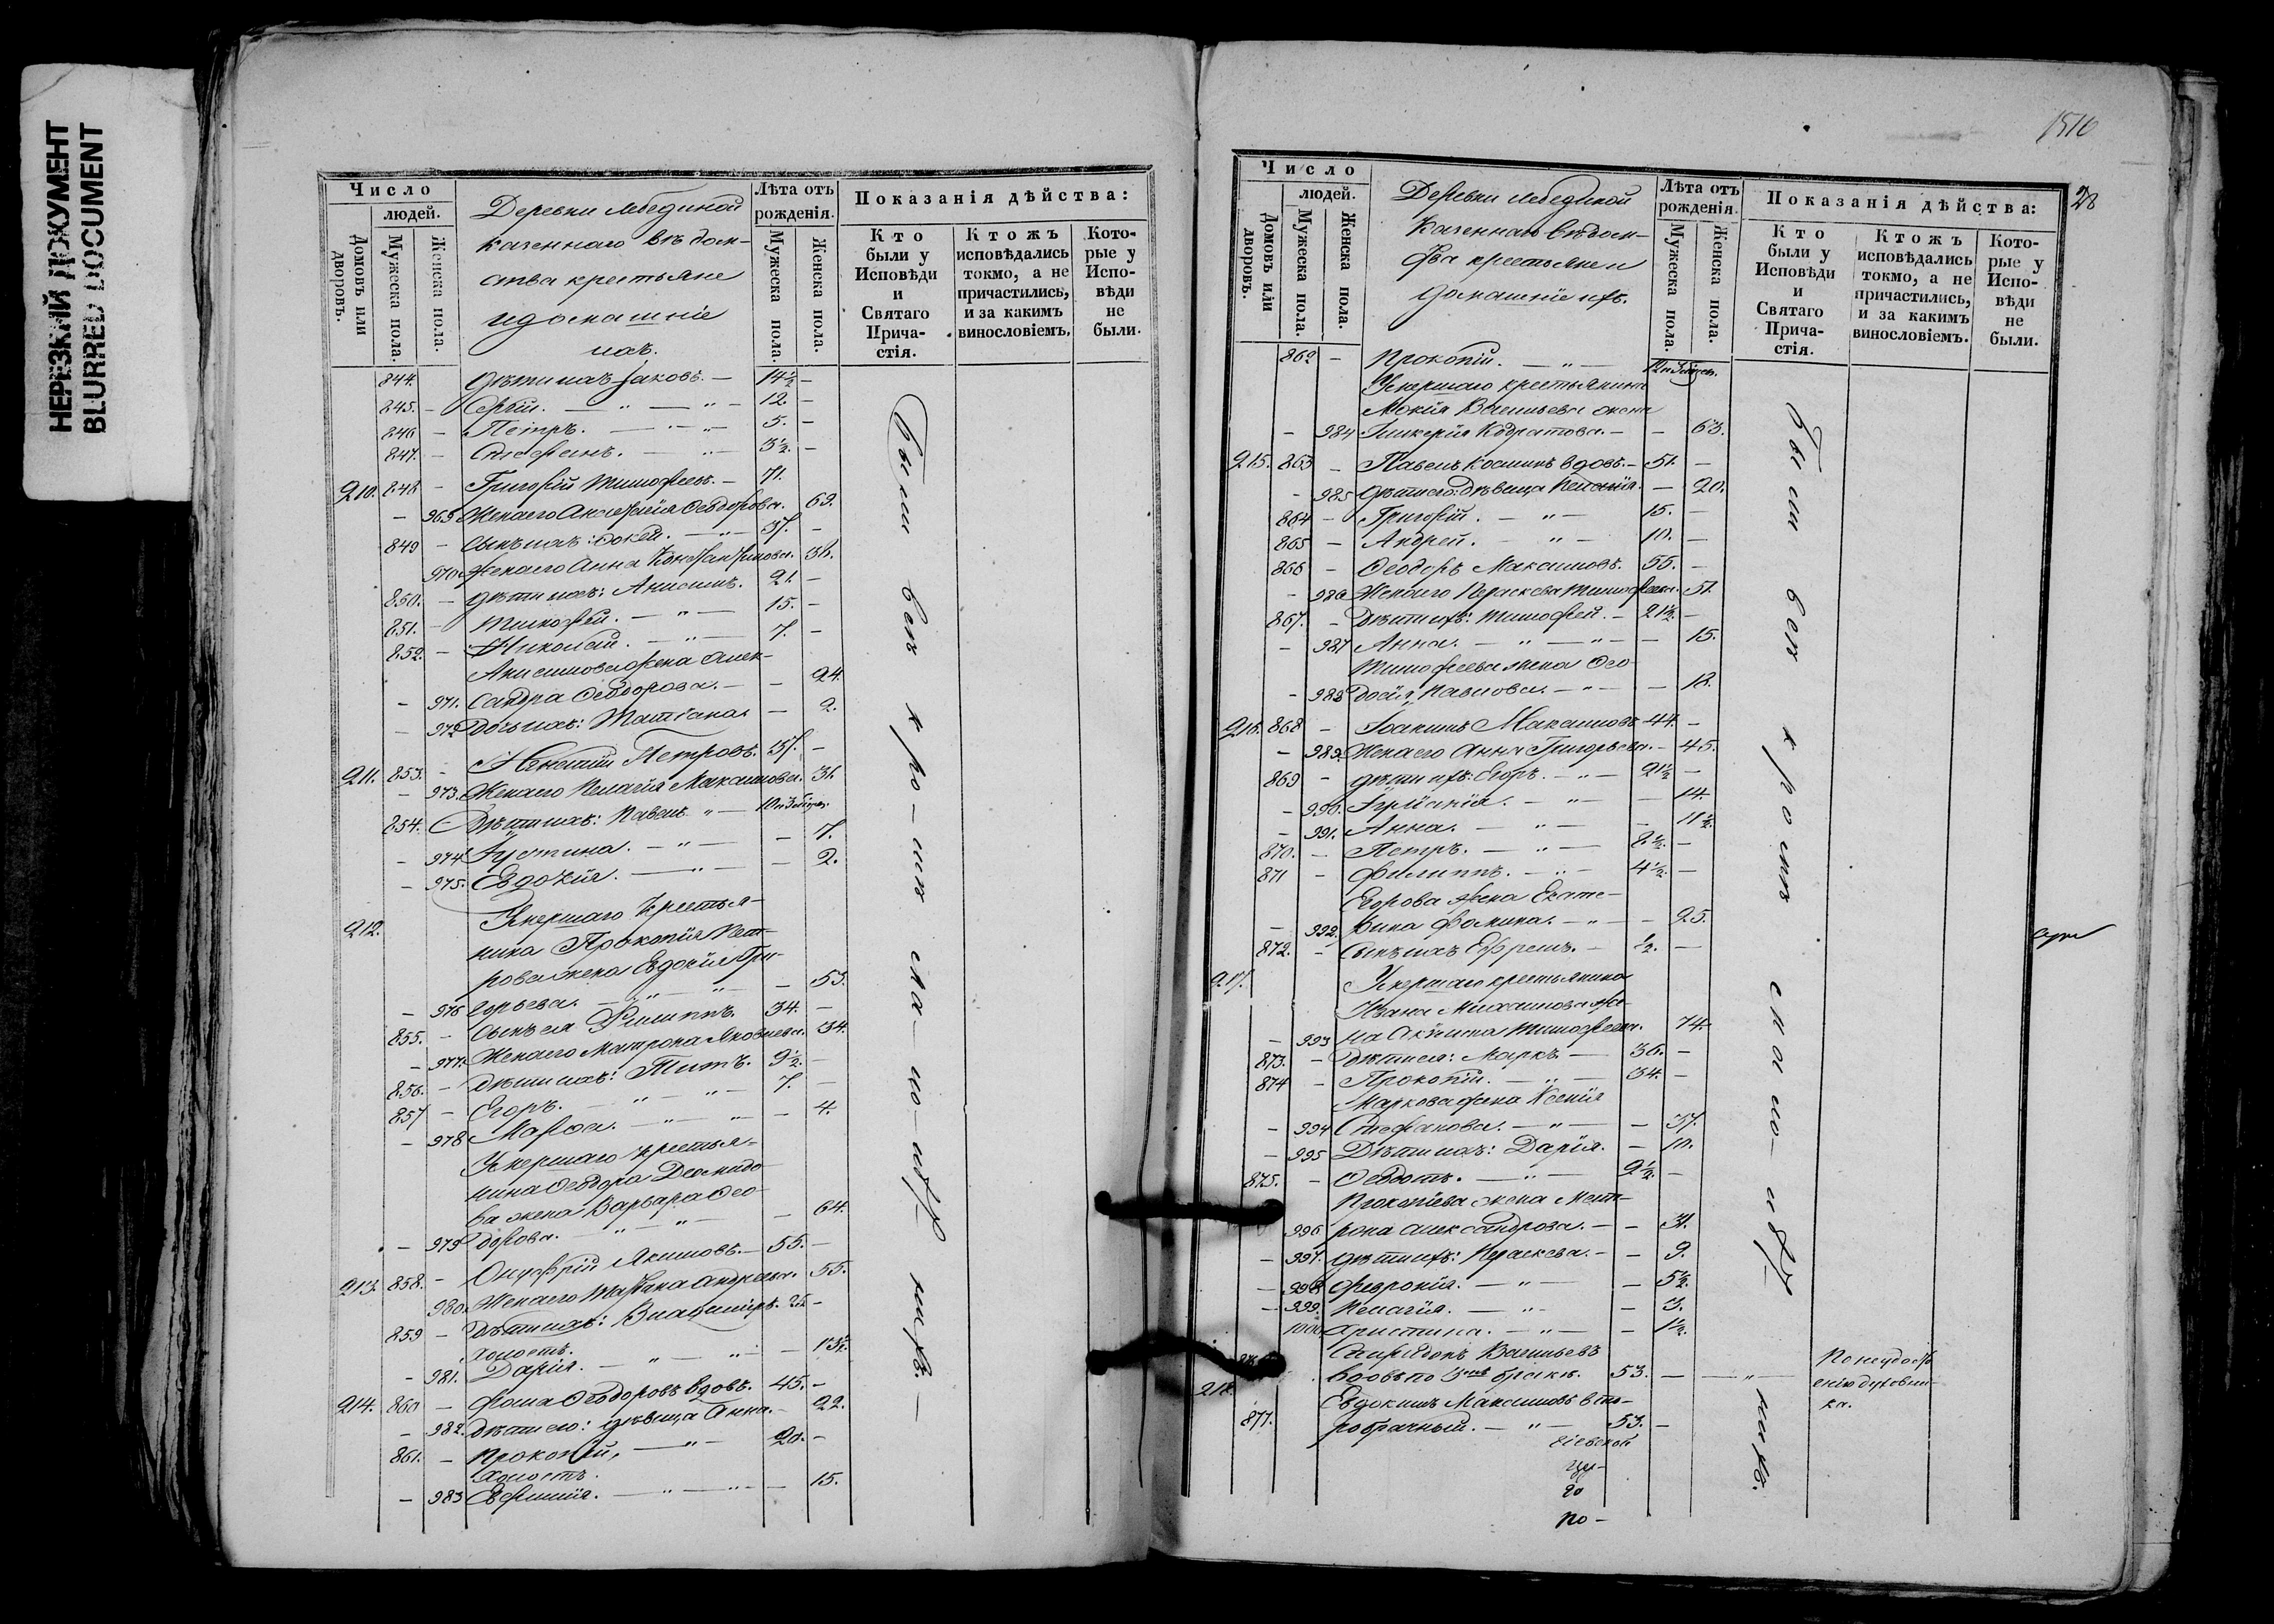 НЕРЕЗКИЙ ДОКУМЕНТ
BLURRED DOCUMENT
Число
людей.
Домовъ или дворовъ.
Мужеска пола.
Женска пола.
Деревни Лебединой
казеннаго вѣдом-
ства крестьяне
и домашніе
ихъ.
Лѣта отъ рожденія.
Мужеска пола.
Женска пола.
Показанія дѣйства:
Кто были у Исповѣди и Святаго Прича-стія.
Ктожъ исповѣдались токмо, а не причастились, и за какимъ винословіемъ.
Кото-рые у Испо-вѣди не были.
844. Дѣти ихъ Іаковъ. — 14½ —
845. — Сергій. — „ — „ — 12. —
846 — Петръ. — „ — 5. —
847. — Стефанъ. — „ — 3½. —
210. 848 — Григорій Тимофеевъ. — 71.
— 969 Жена его Анастасія Ѳеодорова. 69.
849 — Сынъ ихъ: — „ — 37. —
970. Жена его Анна Константинова. 38.
850. — Дѣти ихъ: Анисимъ. 21. —
851. — Тимофей. — „ — 15. —
852. — Николай. — „ — 7. —
Анисимова жена Алек-
— 971. сандра Ѳеодорова. — — 24.
— 972 Дочь ихъ: Татіана. — 2.
211. 853. — Петровъ. 37. —
— 973. Жена его Пелагія Максимова. 31.
854. Дѣти ихъ: Павелъ „ —
— 974 Іустина. — „ — — 7.
— 975. Евдокія. — „ — — 2.
212. Умершаго крестья-
нина Прокопія Пет-
рова жена Евдокія Гри-
— 976 горьева. — „ — „ — — 53.
855. — Сынъ ея Филиппъ. 34. —
— 977. Жена его Матрона Яковлева. 34.
856. — Дѣти ихъ: Титъ. 9½. —
857 — Егоръ. — „ — „ — 7. —
— 978 Марѳа. — „ — „ — 4.
Умершаго крестья-
нина Ѳеодора Демидо-
ва жена Варвара Ѳео-
— 979 дорова. — „ — „ — — 64.
213. 858. — Онуфрій Якимовъ. — 55. —
980. Жена его Татіана Андреева. 55.
859 — Дѣти ихъ: Владиміръ.
холостъ.
— 981. Дарія. — „ — „ — — 13½.
214. 860 — Фома Ѳеодоровъ вдовъ. 45. —
— 982. Дѣти его: дѣвица Анна. — 22.
861. — Прокопій, — „ — 20. —
холостъ.
— 983 Евфимія. — „ — „ — — 15.
Были вси кро-ми ма-ло-лѣт-нихъ. —
1516
28
Число
людей.
Домовъ или дворовъ.
Мужеска пола.
Женска пола.
Деревни Лебединой
Казеннаго вѣдом-
ства крестьяне и
домашніе ихъ.
Лѣта отъ рожденія.
Мужеска пола.
Женска пола.
Показанія дѣйства:
Кто были у Исповѣди и Святаго Прича-стія.
Ктожъ исповѣдались токмо, а не причастились, и за какимъ винословіемъ.
Кото-рые у Испо-вѣди не были.
862 — Прокопій. — „ —
Умершаго крестьянина
Мокія Васильева жена
— 984 Гликерія Кодратова. — — 63.
215. 863 — Павелъ Косминъ вдовъ. — 51. —
— 985 Дѣти его: дѣвица Пелагія. — 20.
864 — Григорій. — „ — 15. —
865 — Андрей. — „ — 10. —
866 — Ѳеодоръ Максимовъ. 55. —
— 986 Жена его Параскева Тимофеева. 51.
867. — Дѣти ихъ: Тимофей. — 21½. —
— 987 Анна. — „ — „ — — 15.
Тимофеева жена Ѳео-
— 988 досія Павлова. — „ — — 18.
216. 868 — Іоакимъ Максимовъ 44. —
— 989. Жена его Анна Григорьева. — 45.
869 — Дѣти ихъ: Егоръ. — „ — 21½ —
— 990. Іуліанія. — „ — — 14.
— 991. Анна. — „ — — 11½.
870. — Петръ. — „ — 8½. —
871 — Филиппъ. — „ — 4½. —
Егорова жена Екате-
— 992. рина Фомина. — „ — — 25.
872. — Сынъ ихъ Ефремъ. — ½. —
217. Умершаго крестьянина
Ивана Михаилова же-
— 993 на Акилина Тимофеева. 74.
873. — Дѣти ея: Маркъ. — 36. —
874 — Прокопій. — „ — 34. —
Маркова жена Ксенія
— 994 Стефанова. — „ — — 37.
— 995 Дѣти ихъ: Дарія. — 10.
875. — Ѳеодотъ. — „ — 2½. —
Прокопіева жена Мат-
996 рона Александрова. — — 31.
— 997. Дѣти ихъ: Параскева. — — 9.
— 998 Февронія. — „ — — 5½.
— 999. Пелагія. — „ — — 3.
1000. Христина. — „ — — 1½.
Спиридонъ Васильевъ
вдовъ по 3мъ бракѣ. 53. — — „ —
По неудостоенію духовни-
ка.
218. Евдокимъ Максимовъ вто-
877. робрачный. — „ — 53. —
го
по —
Были вси кроми мало-лѣт-нихъ.